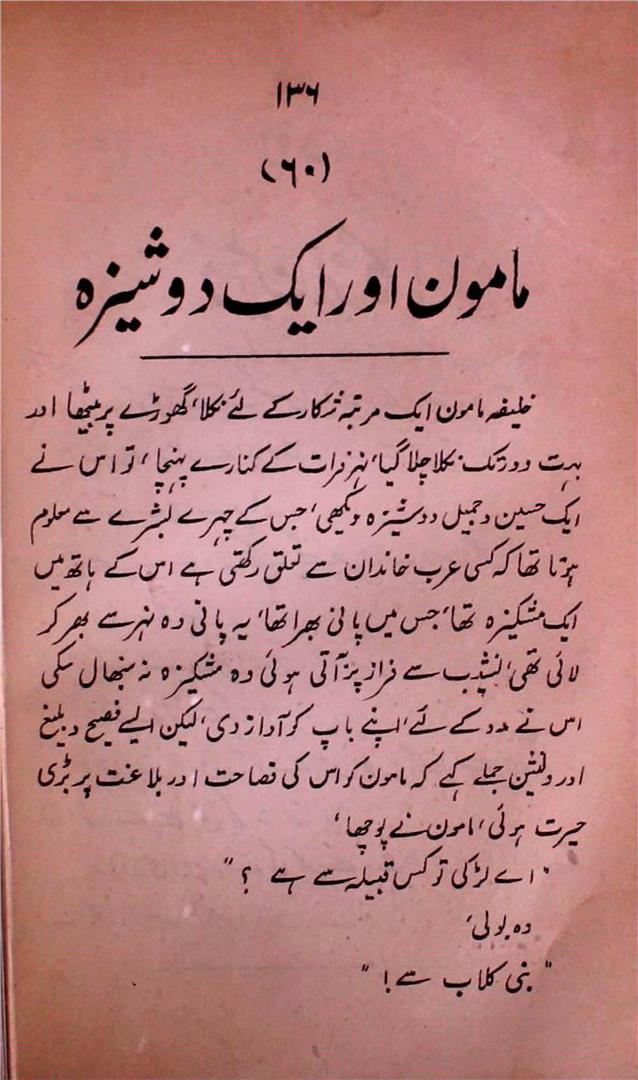 ۱۳۶
(۶۰)
مامون اور ایک دوشیزہ
خلیفہ مامون ایک مرتبہ شکار کے لئے نکلا، گھوڑے پر بیٹھا اور
بہت دور تک نکلا چلا گیا، نہر فرات کے کنارے پہنچا، تو اس نے
ایک حسین و جمیل دوشیزہ دیکھی، جس کے چہرے بشرے سے معلوم
ہوتا تھا کہ کسی عرب خاندان سے تعلق رکھتی ہے اس کے ہاتھ میں
ایک مشکیزہ تھا، جس میں پانی بھرا تھا، یہ پانی وہ نہر سے بھر کر
لائی تھی، نشیب سے فراز پر آتی ہوئی وہ مشکیزہ نہ سنبھال سکی
اس نے مدد کے لئے، اپنے باپ کو آواز دی، لیکن ایسے فصیح و بلیغ
اور دلنشین جملے کہے کہ مامون کو اس کی فصاحت اور بلاغت پر بڑی
حیرت ہوئی، مامون نے پوچھا،
"اے لڑکی تو کس قبیلہ سے ہے ؟"
وہ بولی،
"بنی کلاب سے!"